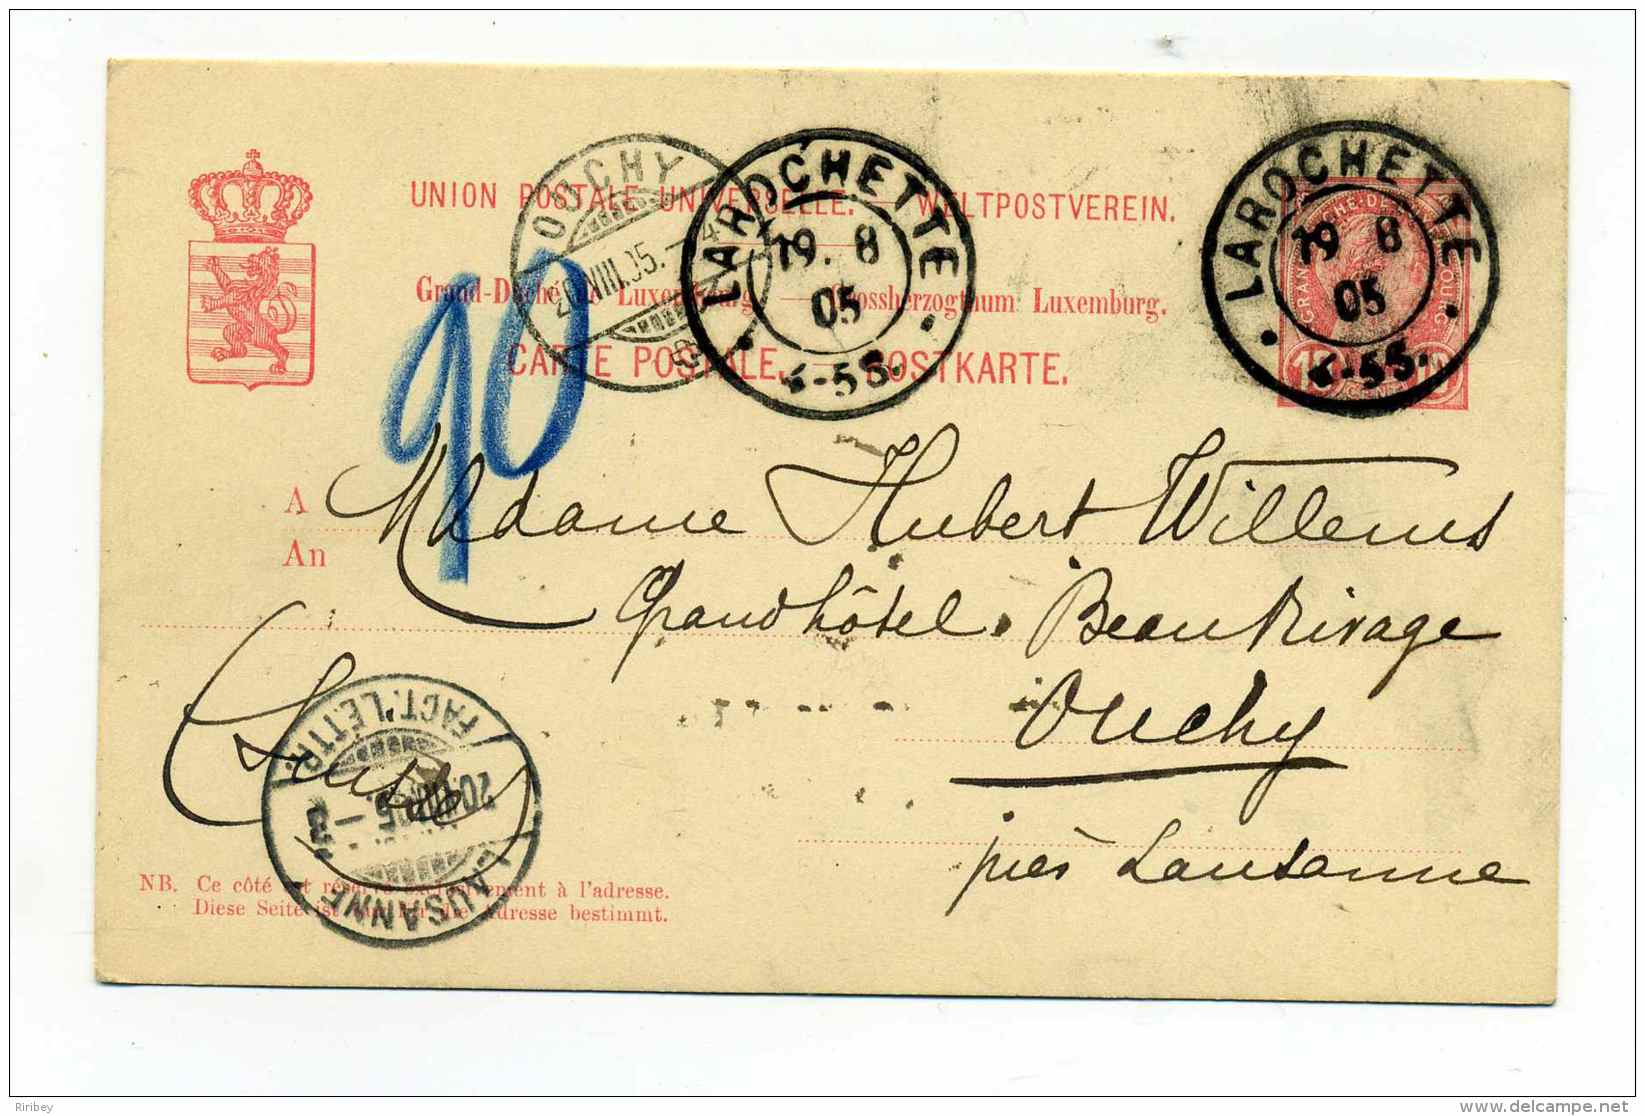 UNION POSTALE UNIVERSELLE. — WELTPOSTVEREIN.
Grand-Duché de Luxembourg. — Grossherzogthum Luxemburg.
CARTE POSTALE. — POSTKARTE.
OUCHY
20.VIII.05.–4
LAROCHETTE
19. 8
05
4-5S.
LAROCHETTE
19 8
05
4-5S.
10
90
A
An
Madame Hubert Willems
Grand hôtel. Beau Rivage
Ouchy
près Lausanne
Suisse
LAUSANNE
FACT. LETTR.
20.VIII.05.
NB. Ce côté est réservé exclusivement à l'adresse.
Diese Seite ist nur für die Adresse bestimmt.
Riribey
delcampe.net